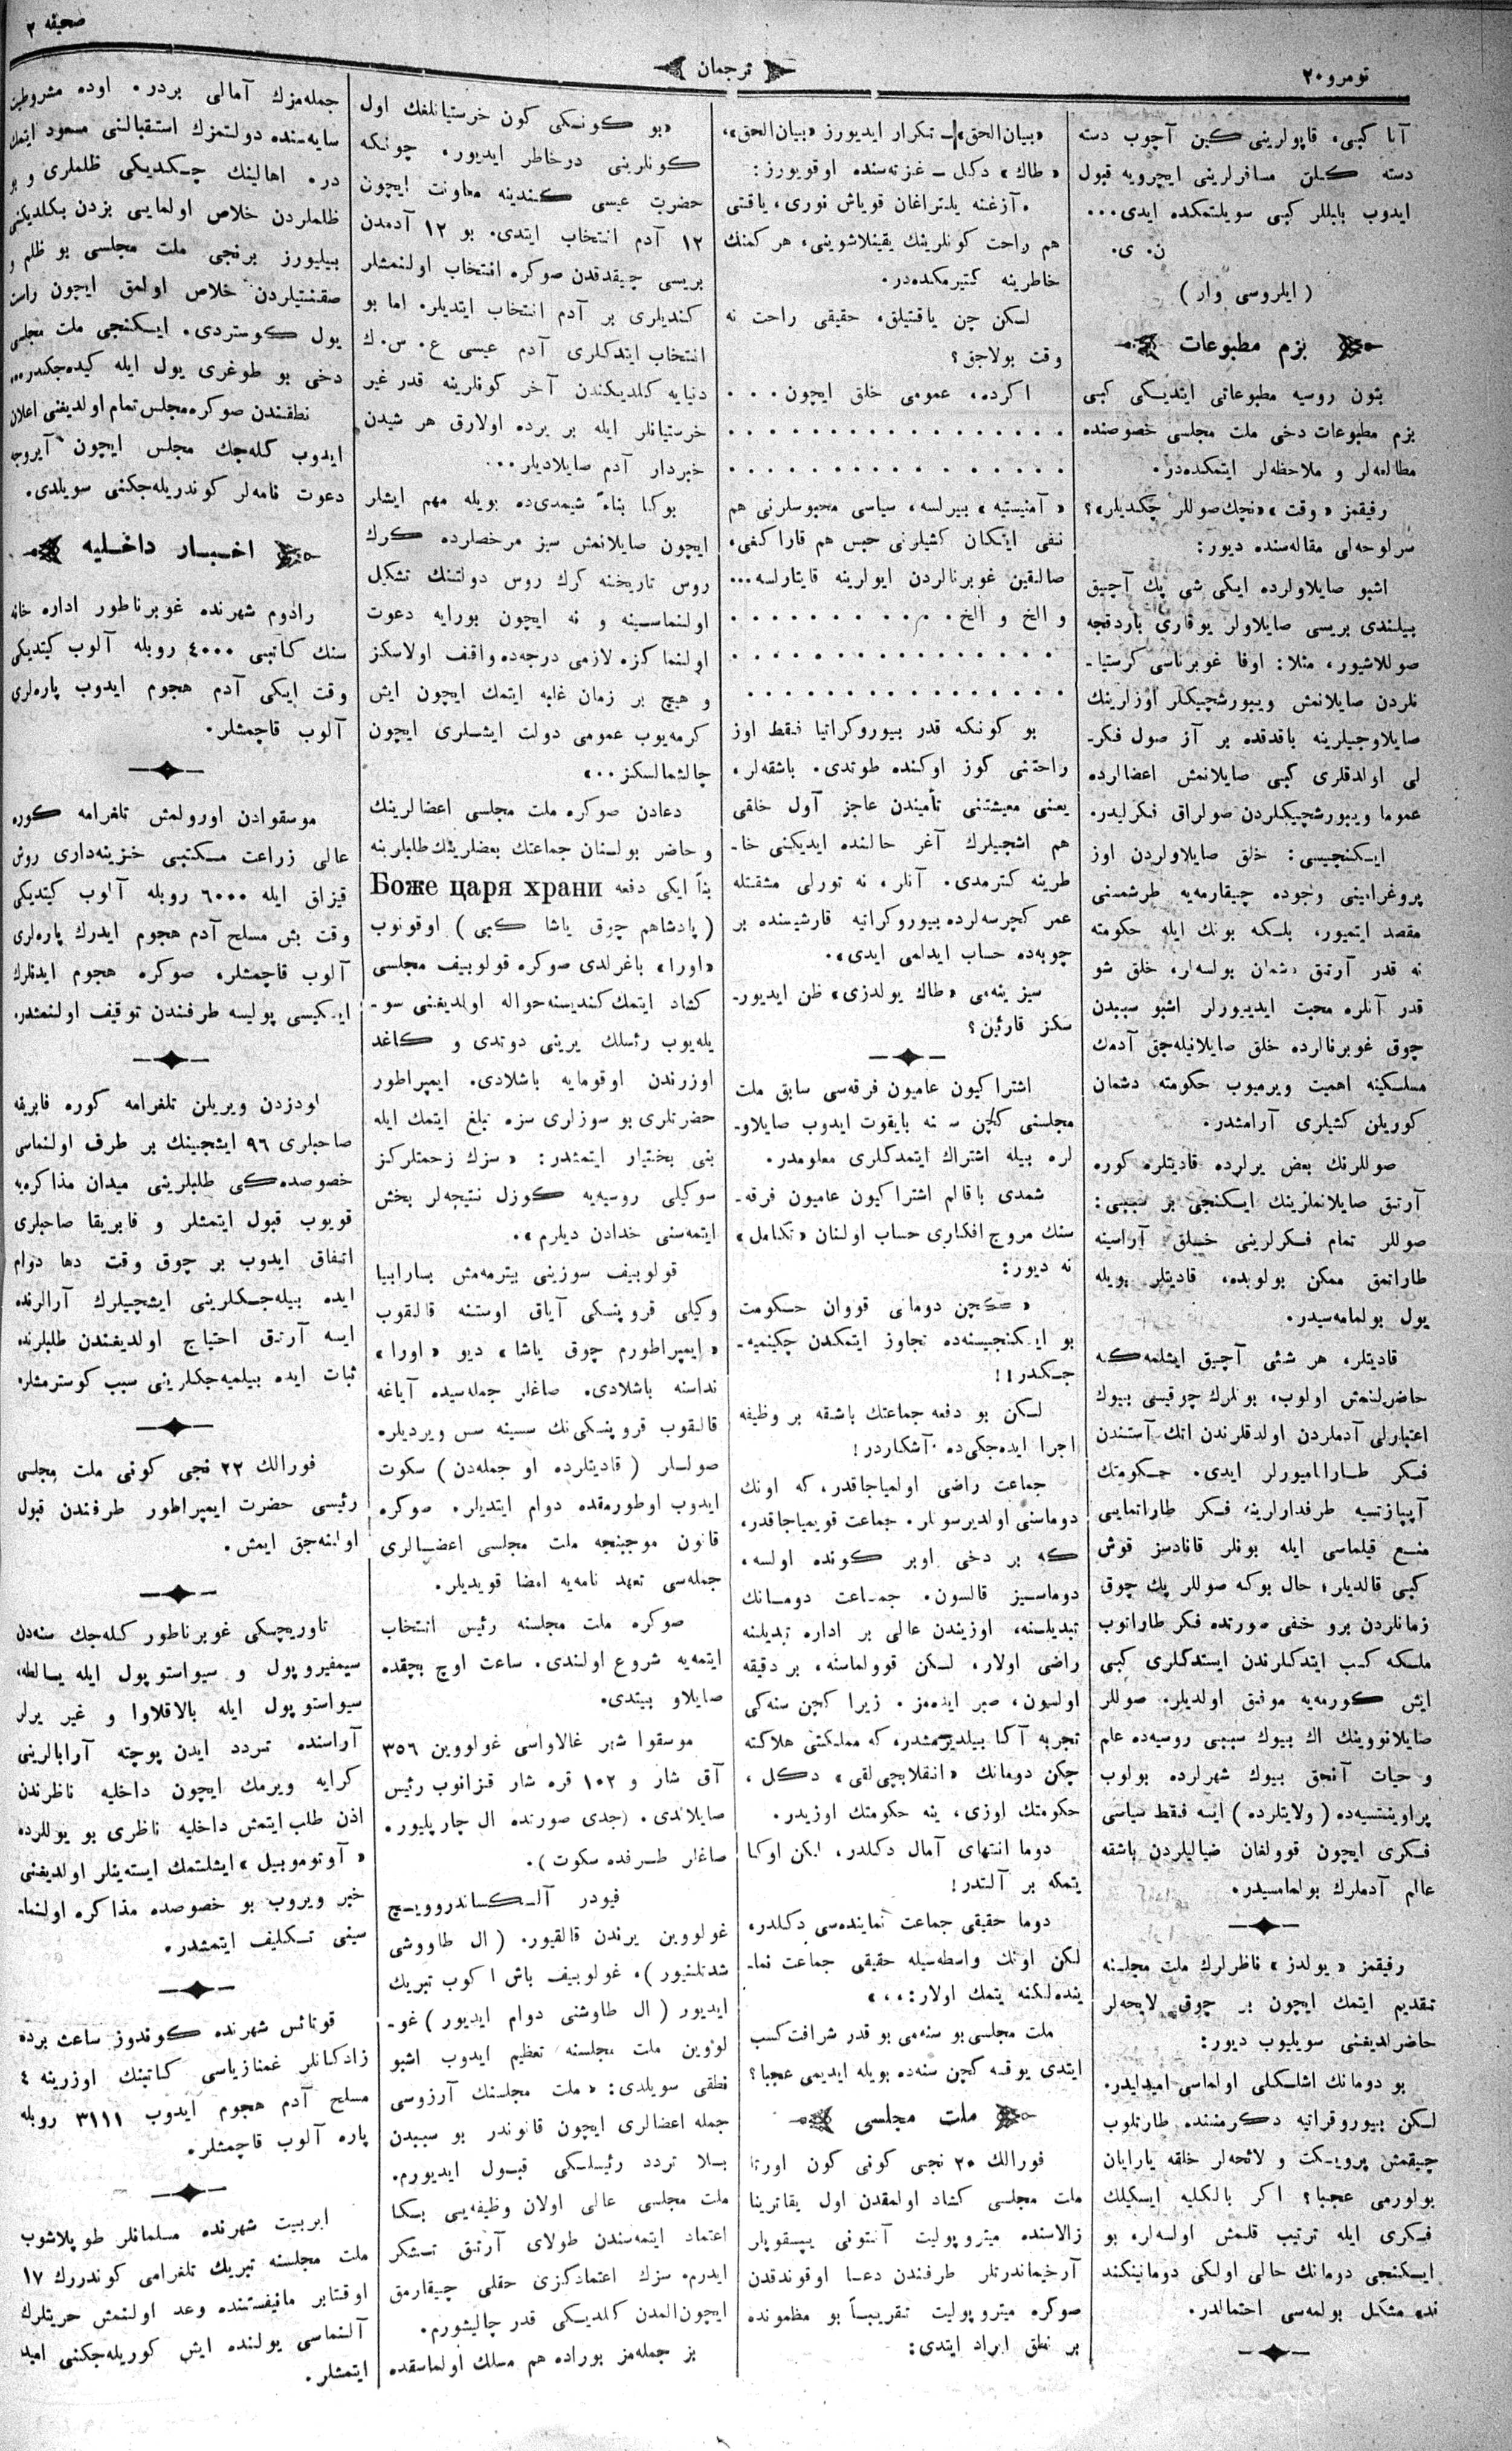 نومرو ٢٠
ترجمان
صحيفه ٢
آنا كبى، قاپولرينى كين آچوب دسته
دسته كلن مسافرلرينى ايچرويه قبول
ايدوب بابللر كبى سويلتمكده ايدى...
ن. ى.
(ايلروسى وار)
بزم مطبوعات
بتون روسيه مطبوعاتى ايتديكى كبى
بزم مطبوعات دخى ملت مجلسى خصوصنده
مطالعه‌لر و ملاحظه‌لر ايتمكده‌در.
رفيقمز «وقت» «نچك صوللر چكديلر»؟
سرلوحه‌لى مقاله‌سنده ديور:
اشبو صايلاولرده ايكى شى پك آچيق
بيلندى بريسى صايلاولر يوقارى باردقجه
صوللاشيور، مثلا: اوفا غوبرناسى كرستيا-
نلردن صايلانمش ويبورشچيكلر اوزلرينك
صايلاوجيلرينه باقدقده بر آز صول فكر-
لى اولدقلرى كبى صايلانمش اعضالرده
عموما ويبورشچيكلردن صولراق فكرليدر.
ايكنجيسى: خلق صايلاولردن اوز
پروغرامينى وجوده چيقارمه‌يه طرشمنى
مقصد ايتميور، بلكه بونك ايله حكومته
نه قدر آرتق دشمان بولسه‌لر، خلق شو
قدر آنلره محبت ايدييورلر اشبو سببدن
چوق غوبرنالرده خلق صايلانيله‌جق آدمك
مسلكينه اهميت ويرميوب حكومته دشمان
كوريلن كشيلرى آرامشدر.
صوللرنك بعض يرلرده قاديتلره كوره
آرتق صايلانملرينك ايكنجى بر سببى:
صوللر تمام فكرلرينى خلق آراسينه
طاراتمق ممكن بولوبده، قاديتلر بويله
يول بولمامه‌سيدر.
قاديتلر، هر شئى آچيق ايشلمه‌كه
حاضرلنمش اولوب، بونلرك چوقيسى بيوك
اعتبارلى آدملردن اولدقلرندن انك آستندن
فكر طاراتاميورلر ايدى. حكومتك
آپپازتسيه طرفدارلرينه فكر طاراتمايى
منع قيلماسى ايله بونلر قانادسز قوش
كبى قالديلر؛ حال بوكه صوللر پك چوق
زمانلردن برو خفى صورتده فكر طاراتوب
ملكه كسب ايتدكلرندن ايستدكلرى كبى
ايش كورمه‌يه موفق اولديلر. صوللر
صايلانووينك اك بيوك سببى روسيه‌ده علم
و حيات آنجق بيوك شهرلرده بولوب
پراوينتسيه‌ده (ولايتلرده) ايسه فقط سياسى
فكرى ايچون قوولغان ضياليلردن باشقه
عالم آدملرك بولمامسيدر.
رفيقمز «يولدز» ناظرلرك ملت مجلسنه
تقديم ايتمك ايچون بر چوق لايحه‌لر
حاضرلديغنى سويليوب ديور:
بو دومانك اشلكلى اولماسى اميدليدر.
لكن بيوروقراتيه دكرمننده طارتلوب
چيقمش پرويكت و لائحه‌لر خلقه يارايان
بولورمى عجبا؟ اكر بالكليه ايسكيلك
فكرى ايله ترتيب قلمش اولسه‌لر، بو
ايكنجى دومانك حالى اولكى دومانينكند
نده مشكل بولمه‌سى احتمالدر.
«بيان الحق» — تكرار ايديورز «بيان الحق»،
«طاك» دكل — غزته‌سنده اوقويورز:
«آزغنه يلتراغان قوياش نورى، ياقتى
هم راحت كونلرينك يقينلاشوينى، هر كمنك
خاطرينه كتيرمكده‌در.
لكن چن ياقتيلق، حقيقى راحت نه
وقت بولاجق؟
اكرده، عمومى خلق ايچون . . .
. . . . . . . . . . . . . . .
. . . . . . . . . . . . . . .
«آمنيستيه» بيرلسه، سياسى محبوسلرنى هم
نفى ايتكان كشيلرنى حبس هم قاراكغى،
صالقين غوبرنالردن ايولرينه قايتارلسه...
و الخ و الخ. . . . . . . . . .
. . . . . . . . . . . . . . .
. . . . . . . . . . . . . . .
بو كونكه قدر بيوروكراتيا فقط اوز
راحتنى كوز اوكنده طوتدى. باشقه‌لر،
يعنى معيشتنى تأميندن عاجز آول خلقى
هم اشچيلرك آغر حالنده ايديكنى خا-
طرينه كترمدى. آنلر، نه تورلى مشقتله
عمر كچرسه‌لرده بيوروكراتيه قارشيسنده بر
چوبه‌ده حساب ايدلمى ايدى».
سيز ينه‌مى «طاك يولدزى» ظن ايديور-
سكز قارئين؟
اشتراكيون عاميون فرقه‌سى سابق ملت
مجلسنى كچن سنه بايقوت ايدوب صايلاو-
لره بيله اشتراك ايتمدكلرى معلومدر.
شمدى باقالم اشتراكيون عاميون فرقه-
سنك مروج افكارى حساب اولنان «تكامل»
نه ديور:
«كچن دومانى قووان حكومت
بو ايكنجيسنده‌ده تجاوز ايتمكدن چكينميه-
جكدر!!
لكن بو دفعه جماعتك باشقه بر وظيفه
اجرا ايده‌جكى‌ده آشكاردر!
جماعت راضى اولمياجاقدر، كه اونك
دوماسنى اولديرسونلر. جماعت قويمياجاقدر،
كه بر دخى اوبر كونده اولسه،
دوماسيز قالسون. جماعت دومانك
تبديلنه، اوزيندن عالى بر اداره تبديلنه
راضى اولار، لكن قوولماسنه، بر دقيقه
اولسون، صبر ايدەمز. زيرا كچن سنه‌كى
تجربه آكا بيلديرمشدر، كه مملكتى هلاكته
چكن دومانك «انقلابچى‌لقى» دكل،
حكومتك اوزى، ينه حكومتك اوزيدر.
دوما انتهاى آمال دكلدر، لكن اوكا
يتمكه بر آلتدر!
دوما حقيقى جماعت نماينده‌سى دكلدر،
لكن اونك واسطه‌سيله حقيقى جماعت نما-
ينده‌لكنه يتمك اولار:...»
ملت مجلسى بو سنه‌مى بو قدر شرافت كسب
ايتدى يوقسه كچن سنه‌ده بويله ايديمى عجبا؟
ملت مجلسى
فورالك ٢٠ نجى كونى كون اورتا
ملت مجلسى كشاد اولمقدن اول يقاترينا
زالاسنده ميتروپوليت آنتونى يپسقوپلر
آرخيماندرتلر طرفندن دعا اوقوندقدن
صوكره ميتروپوليت تقريباً بو مظمونده
بر نطق ايراد ايتدى:
«بو كونكى كون خرستيانلغك اول
كونلرينى درخاطر ايديور، چونكه
حضرت عيسى كندينه معاونت ايچون
١٢ آدم انتخاب ايتدى. بو ١٢ آدمدن
بريسى چيقدقدن صوكره انتخاب اولنمشلر
كنديلرى بر آدم انتخاب ايتديلر. اما بو
انتخاب ايتدكلرى آدم عيسى ع. س. ك
دنيايه كلديكندن آخر كونلرينه قدر غير
خرستيانلر ايله بر يرده اولارق هر شيدن
خبردار آدم صايلاديلر...
بوكا بناءً شيمدى‌ده بويله مهم ايشلر
ايچون صايلانمش سيز مرخصلرده كرك
روس تاريخنه كرك روس دولتنك تشكيل
اولنماسينه و نه ايچون بورايه دعوت
اولنماكزه لازمى درجه‌ده واقف اولاسكز
و هيچ بر زمان غلبه ايتمك ايچون ايش
كرمه‌يوب عمومى دولت ايشلرى ايچون
چالشمالسكز..»
دعادن صوكره ملت مجلسى اعضالرينك
و حاضر بولنان جماعتك بعضلرينك طلبلرينه
بناً ايكى دفعه Боже царя храни
(پادشاهم چوق ياشا كبى) اوقونوب
«اورا» باغرلدى صوكره قولوبيف مجلسى
كشاد ايتمك كنديسنه حواله اولديغنى سو-
يله‌يوب رئسلك يرينى دوتدى و كاغد
اوزرندن اوقومايه باشلادى. ايمپراطور
حضرتلرى بو سوزلرى سزه تبلغ ايتمك ايله
بنى بختيار ايتمشدر: «سزك زحمتلركز
سوكيلى روسيه‌يه كوزل نتيجه‌لر بخش
ايتمه‌سنى خدادن ديلرم».
قولوبيف سوزينى بيترمه‌مش بسارابيا
وكيلى قروپنسكى آياق اوستنه قالقوب
«ايمپراطورم چوق ياشا» ديو «اورا»
نداسنه باشلادى. صاغلر جمله‌سيده آياغه
قالقوب قروپنسكى‌نك سسينه سس ويرديلر.
صولسلر (قاديتلرده او جمله‌دن) سكوت
ايدوب اوطورمقده دوام ايتديلر. صوكره
قانون موجبنجه ملت مجلسى اعضالرى
جمله‌سى تعهد نامه‌يه امضا قويديلر.
صوكره ملت مجلسنه رئيس انتخاب
ايتمه‌يه شروع اولندى. ساعت اوچ بچقده
صايلاو بيتدى.
موسقوا شهر غالاواسى غولووين ٣٥٦
آق شار و ١٠٢ قره شار قزانوب رئيس
صايلاندى. (جدى صورتده ال چارپليور.
صاغلر طرفده سكوت).
فيودر آلكساندروويچ
غولووين يرندن قالقيور. (ال طاووشى
شدتلنيور). غولوبيف باش اكوب تبريك
ايديور (ال طاوشنى دوام ايديور) غو-
لووين ملت مجلسنه تعظيم ايدوب اشبو
نطقى سويلدى: «ملت مجلسنك آرزوسى
جمله اعضالرى ايچون قانوندر بو سببدن
بلا تردد رئيسلكى قبول ايديورم.
ملت مجلسى عالى اولان وظيفه‌يى بكا
اعتماد ايتمه‌سندن طولاى آرتق تشكر
ايدرم. سزك اعتمادكزى حقلى چيقارمق
ايچون المدن كلديكى قدر چاليشورم.
بز جمله‌مز بوراده هم مسلك اولماسقده
جمله‌مزك آمالى بردر. اوده مشروطيت
سايه‌سنده دولتمزك استقبالنى مسعود ايتمك
در. اهالينك چكديكى ظلملرى و بو
ظلملردن خلاص اولمايى بزدن بكلديكنى
بيليورز برنجى ملت مجلسى بو ظلم و
صقنتيلردن خلاص اولمق ايچون راست
يول كوستردى. ايكنجى ملت مجلسى
دخى بو طوغرى يول ايله كيده‌جكدر...
نطقندن صوكره مجلس تمام اولديغنى اعلان
ايدوب كله‌جك مجلس ايچون آيروجه
دعوت نامه‌لر كوندريله‌جكنى سويلدى.
اخبار داخليه
رادوم شهرنده غوبرناطور اداره خانه
سنك كاتبى ٤٠٠٠ روبله آلوب كيتديكى
وقت ايكى آدم هجوم ايدوب پاره‌لرى
آلوب قاچمشلر.
موسقوادن اورولمش تلغرامه كوره
عالى زراعت مكتبى خزينه‌دارى روس
قيزاق ايله ٦٠٠٠ روبله آلوب كيتديكى
وقت بش مسلح آدم هجوم ايدرك پاره‌لرى
آلوب قاچمشلر، صوكره هجوم ايدنلرك
ايكيسى پوليسه طرفندن توقيف اولنمشدر.
لودزدن ويريلن تلغرامه كوره فابريقه
صاحبلرى ٩٦ ايشجينك بر طرف اولنماسى
خصوصده‌كى طلبلرينى ميدان مذاكره‌يه
قويوب قبول ايتمشلر و فابريقا صاحبلرى
اتفاق ايدوب بر چوق وقت دها دوام
ايده بيله‌جكلرينى ايشچيلرك آرالرنده
ايسه آرتق احتياج اولديغندن طلبلرنده
ثبات ايده بيلميه‌جكلرينى سبب كوسترمشلر.
فورالك ٢٢ نجى كونى ملت مجلسى
رئيسى حضرت ايمپراطور طرفندن قبول
اولنه‌جق ايمش.
تاوريچسكى غوبرناطور كله‌جك سنه‌دن
سيمفيروپول و سيواستوپول ايله يالطه،
سيواستوپول ايله بالاقلاوا و غير يرلر
آراسنده تردد ايدن پوچته آرابالرينى
كرايه ويرمك ايچون داخليه ناظرندن
اذن طلب ايتمش داخليه ناظرى بو يوللرده
«آوتوموبيل» ايشلتمك ايسته‌ينلر اولديغنى
خبر ويروب بو خصوصده مذاكره اولنما-
سينى تكليف ايتمشدر.
قوتائس شهرنده كوندوز ساعت برده
زادكانلر غمنازياسى كاتبنك اوزرينه ٤
مسلح آدم هجوم ايدوب ٣١١١ روبله
پاره آلوب قاچمشلر.
ايربيت شهرنده مسلمانلر طوپلاشوب
ملت مجلسنه تبريك تلغرامى كوندررك ١٧
اوقتابر مانيفستنده وعد اولنمش حريتلرك
آلنماسى يولنده ايش كوريله‌جكنى اميد
ايتمشلر.